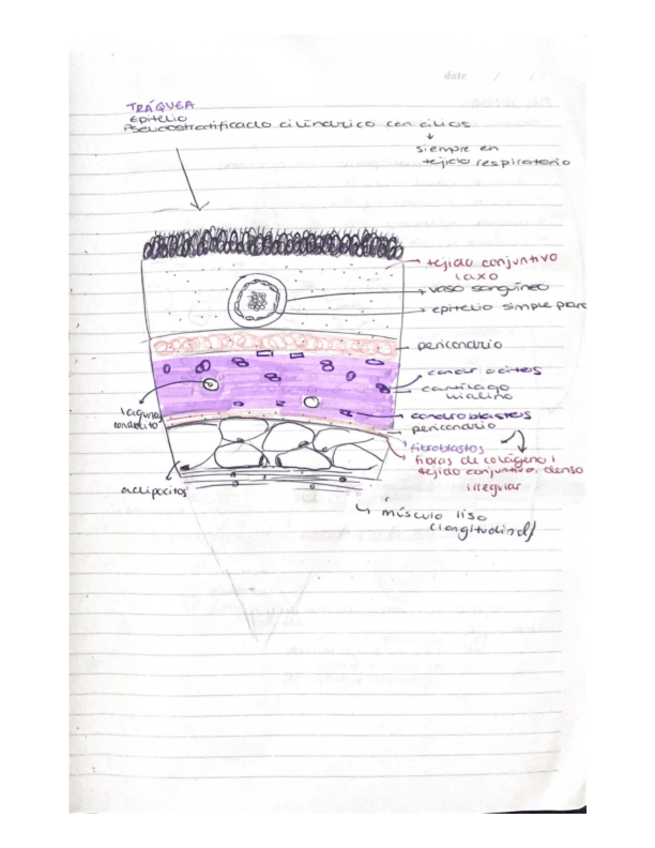 date / /
TRÁQUEA
Epitelio
Pseudoestratificado cilíndrico con cilios
siempre en
tejido respiratorio
tejido conjuntivo
laxo
vaso sanguíneo
epitelio simple plan
pericondrio
condrocitos
cartílago
hialino
laguna
condrocito
condroblastos
pericondrio
fibroblastos
fibras de colágeno I
tejido conjuntivo denso
irregular
adipocitos
músculo liso
(longitudinal)